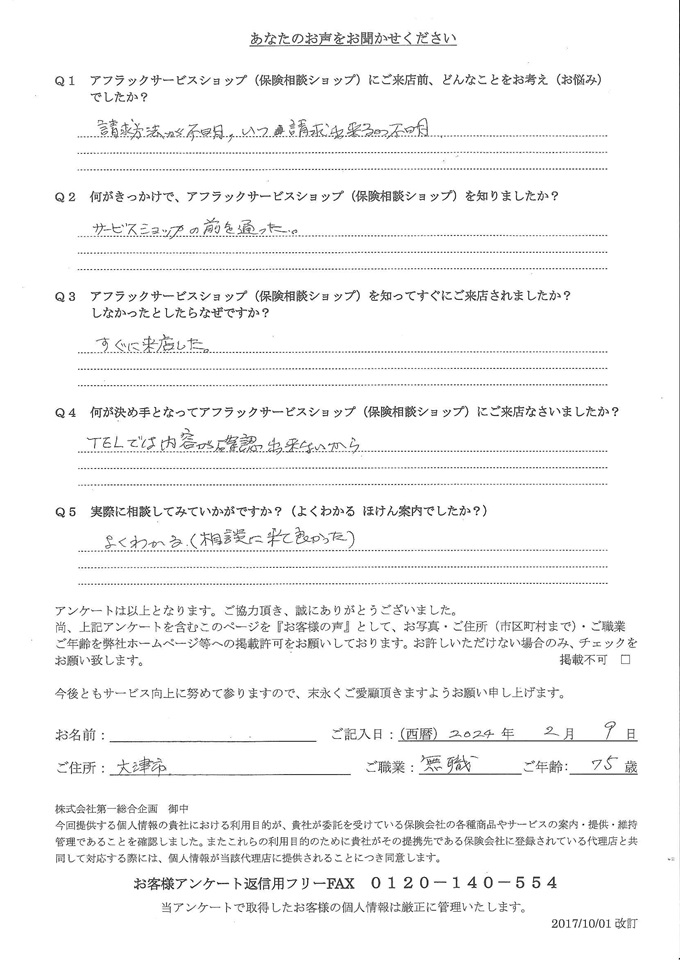 あなたのお声をお聞かせください
Q1 アフラックサービスショップ（保険相談ショップ）にご来店前、どんなことをお考え（お悩み）
でしたか？
請求方法が不明，いつ請求出来るか不明
Q2 何がきっかけで、アフラックサービスショップ（保険相談ショップ）を知りましたか？
サービスショップの前を通った。
Q3 アフラックサービスショップ（保険相談ショップ）を知ってすぐにご来店されましたか？
しなかったとしたらなぜですか？
すぐに来店した。
Q4 何が決め手となってアフラックサービスショップ（保険相談ショップ）にご来店なさいましたか？
TELでは内容が確認出来ないから
Q5 実際に相談してみていかがですか？（よくわかる ほけん案内でしたか？）
よくわかる.（相談に来て良かった）
アンケートは以上となります。ご協力頂き、誠にありがとうございました。
尚、上記アンケートを含むこのページを『お客様の声』として、お写真・ご住所（市区町村まで）・ご職業
ご年齢を弊社ホームページ等への掲載許可をお願いしております。お許しいただけない場合のみ、チェックを
お願い致します。 掲載不可 □
今後ともサービス向上に努めて参りますので、末永くご愛顧頂きますようお願い申し上げます。
お名前： ご記入日：（西暦）2024年 2月 9日
ご住所：大津市 ご職業：無職 ご年齢：75歳
株式会社第一総合企画 御中
今回提供する個人情報の貴社における利用目的が、貴社が委託を受けている保険会社の各種商品やサービスの案内・提供・維持
管理であることを確認しました。またこれらの利用目的のために貴社がその提携先である保険会社に登録されている代理店と共
同して対応する際には、個人情報が当該代理店に提供されることにつき同意します。
お客様アンケート返信用フリーFAX 0120－140－554
当アンケートで取得したお客様の個人情報は厳正に管理いたします。
2017/10/01 改訂